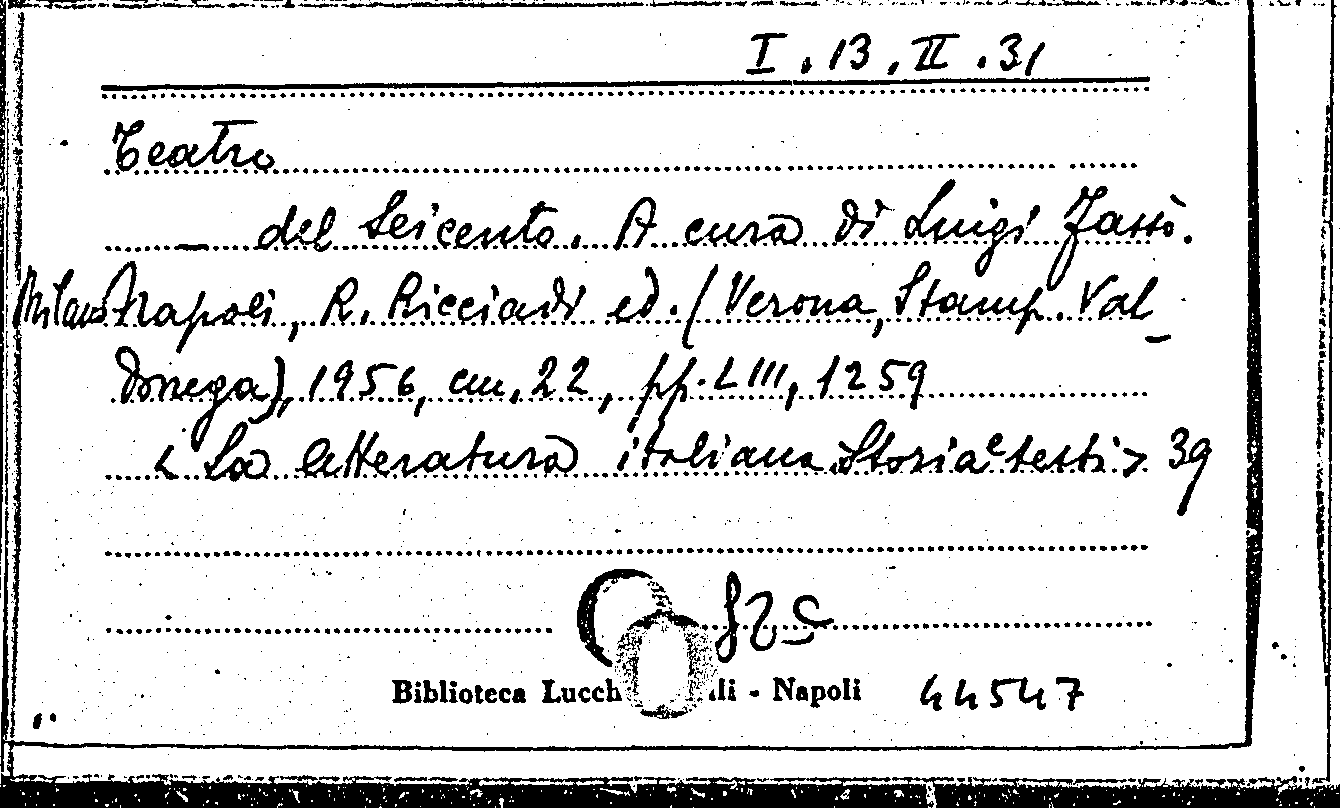 I.13.II.31
Teatro
— del Seicento. A cura di Luigi Fassò.
Milano Napoli, R. Ricciardi ed. (Verona, Stamp. Val_
donega), 1956, cm. 22, pp. LIII, 1259
< La letteratura italiana. Storia e testi > 39
Biblioteca Lucch li - Napoli 44547